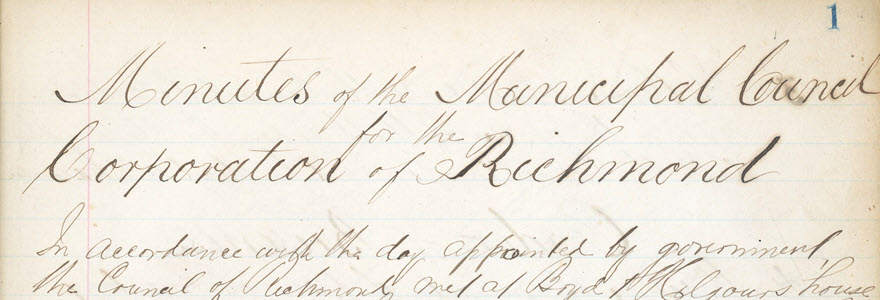 1
Minutes of the Municipal Council
for the
Corporation of Richmond
In accordance with the day appointed by government,
the Council of Richmond, met at Boyd & Kilgours house